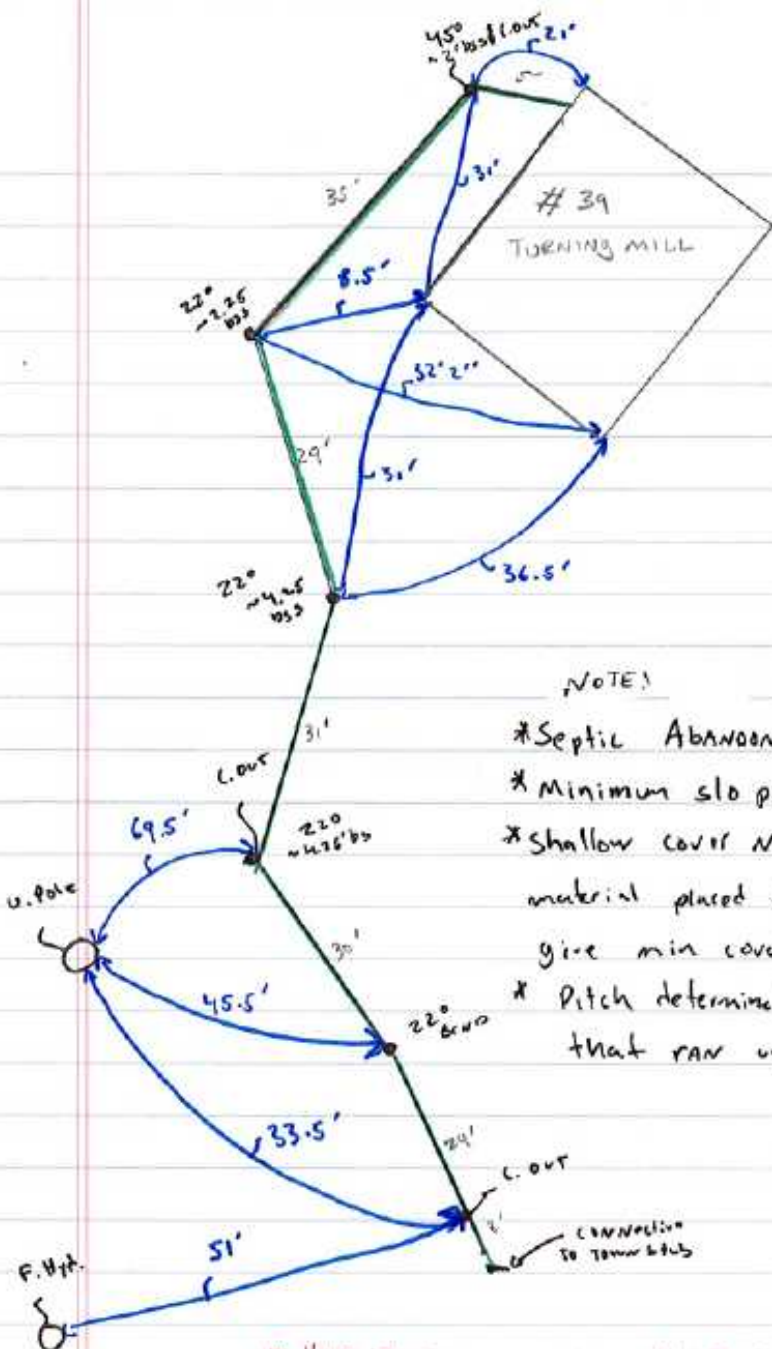 45°
C.out
35'
31'
# 39
TURNING MILL
8.5'
22°
~2.25
bss
32' 2"
29'
31'
36.5'
22°
~4.25
bss
31'
NOTE!
*Septic ABANDON
* Minimum slop
*Shallow cover N
material placed
give min cov
* Pitch determin
that ran u
C.out
69.5'
22°
U.Pole
30'
45.5'
22°
BEND
33.5'
C. OUT
2'
CONNECTION
TO TOWN STUB
51'
F. Hyd.